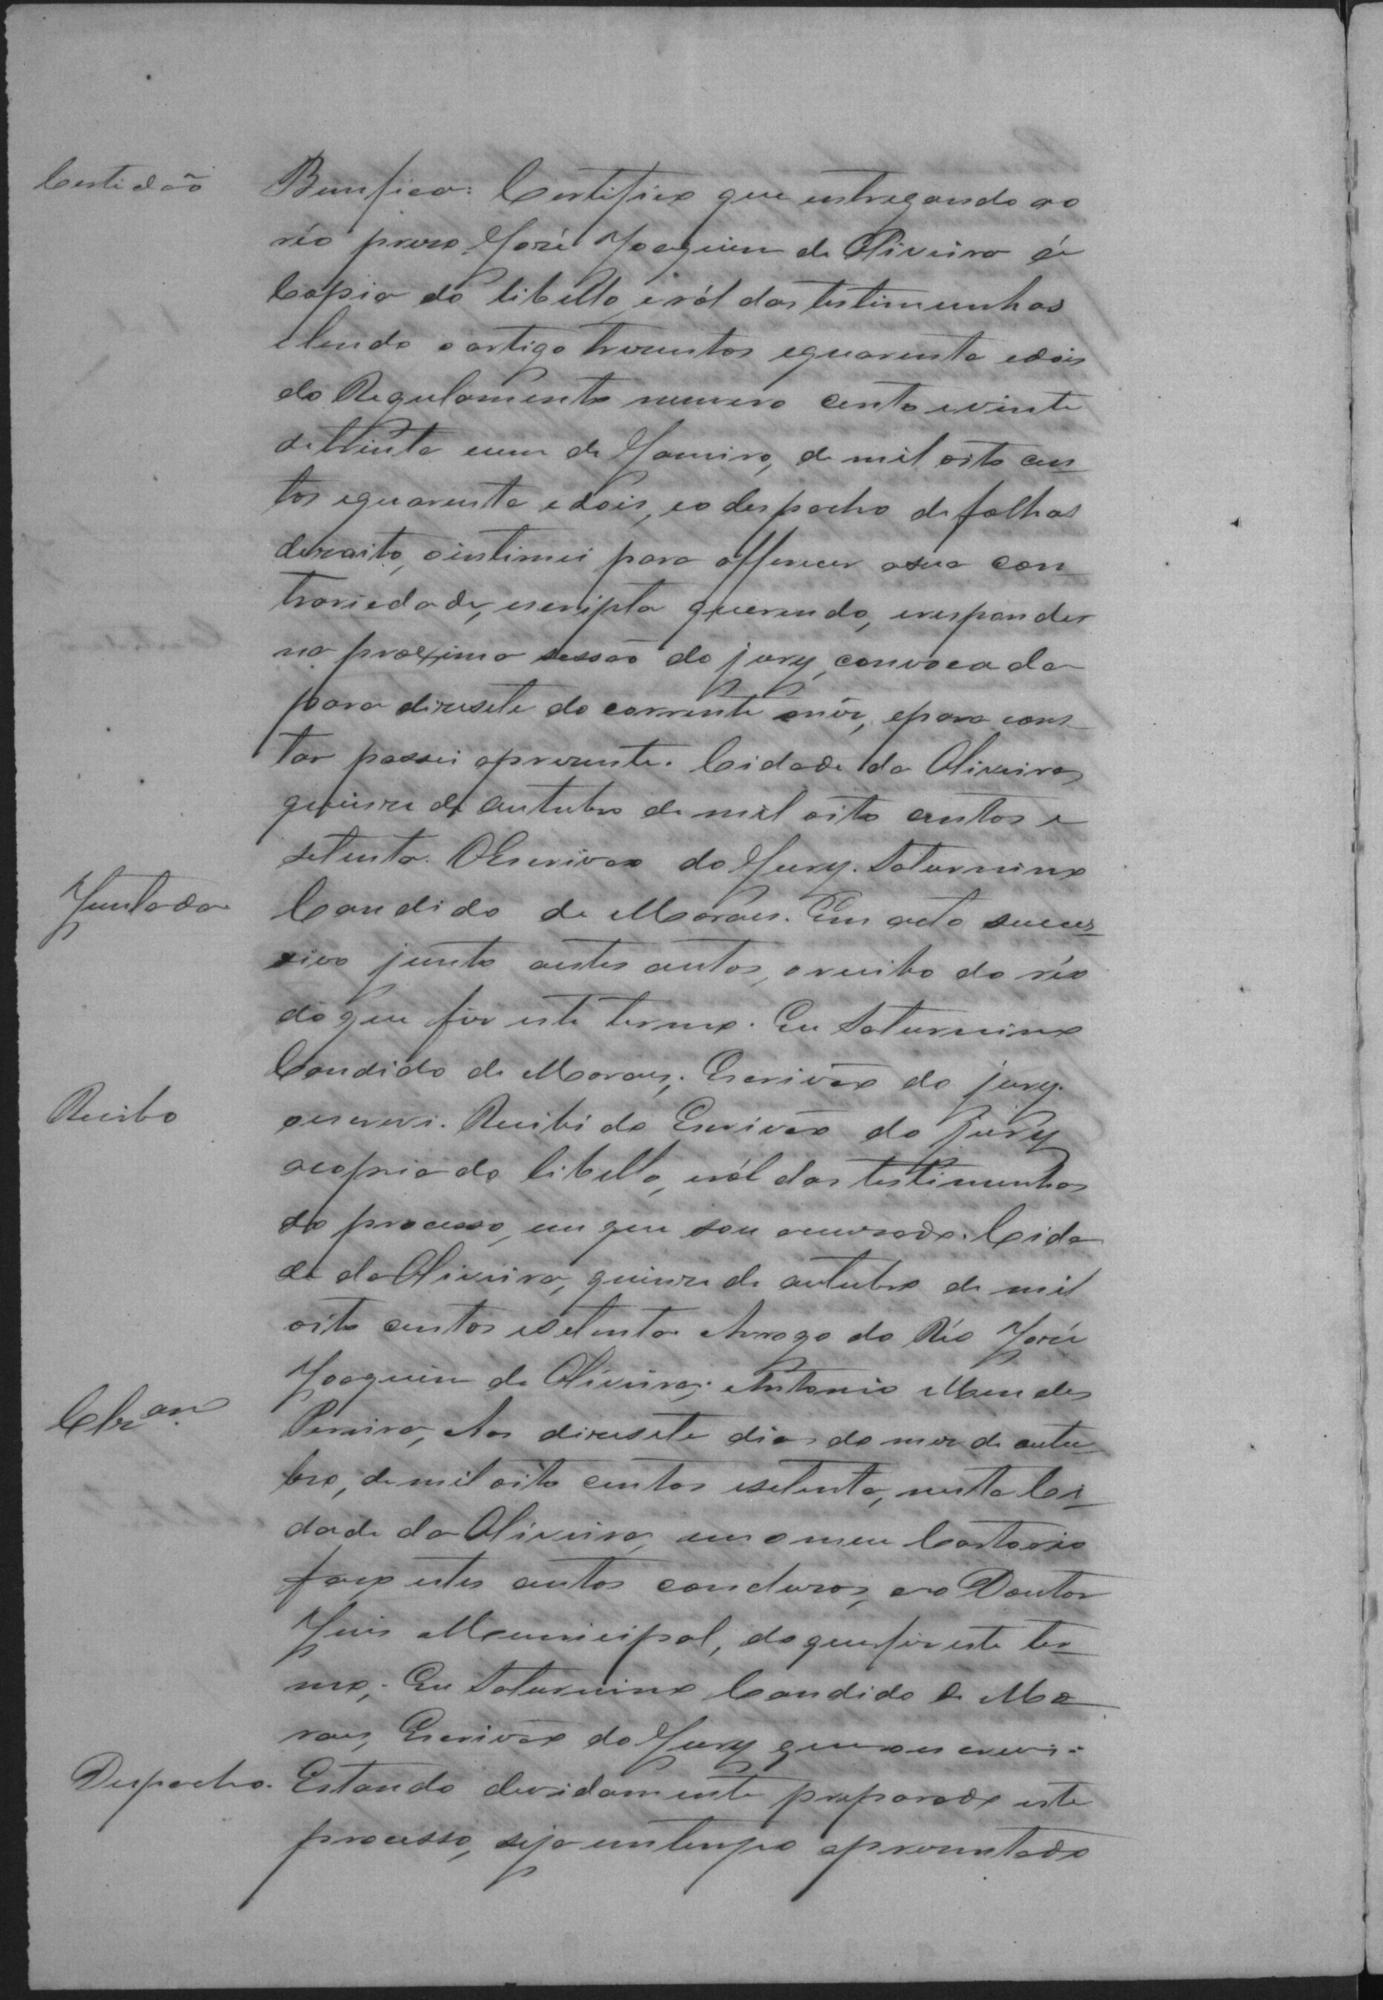 Certidão Bemfica. Certifico que entregando ao
réo prezo José Joaquim de Oliveira a
Copia do libello, e ról das testimunhas
e lendo o artigo trezentos e quarenta e dois
do Regulamento numero cento e vinte
de trinta e um de Janeiro, de mil oito cen
tos e quarenta e dois, e o despacho de folhas
dezoito, o intimei para offerecer a sua con
trariedade, escripta querendo, e responder
na proxima sessão do jury, convocada
para dezesete do corrente mêz, e para cons
tar passei a prezente. Cidade da Oliveira
quinze de outubro de mil oito centos e
setenta. O Escrivão do Jury. Saturnino
Juntada Candido de Moraes. Em acto succes
sivo junto a estes autos, o recibo do réo
do que fiz este termo. Eu Saturnino
Candido de Moraes, Escrivão do jury
Recibo o escrevi. Recibi do Escrivão do jury
a copia do libello, e ról das testimunhas
do processo, em que sou accuzado. Cida
de da Oliveira, quinze de outubro de mil
oito centos e setenta. Arrogo do Réo José
Joaquim de Oliveira, Antonio Mendes
Clzam. Pereira, Aos dizesete dias do mez de outu
bro, de mil oito centos e setenta, nesta Ci
dade da Oliveira, em o meu Cartorio
faço estes autos concluzos, ao Doutor
Juis Municipal, do que fiz este ter
mo, Eu Saturnino Candido de Mo
raes, Escrivão do Jury que o escrevi.
Despacho. Estando devidamente preparado este
processo, seja em tempo aprezentado